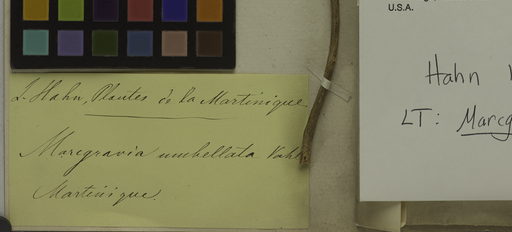 U.S.A.
L. Hahn, Plantes de la Martinique
Marcgravia umbellata Vahl.
Martinique.
Hahn
LT: Marcg